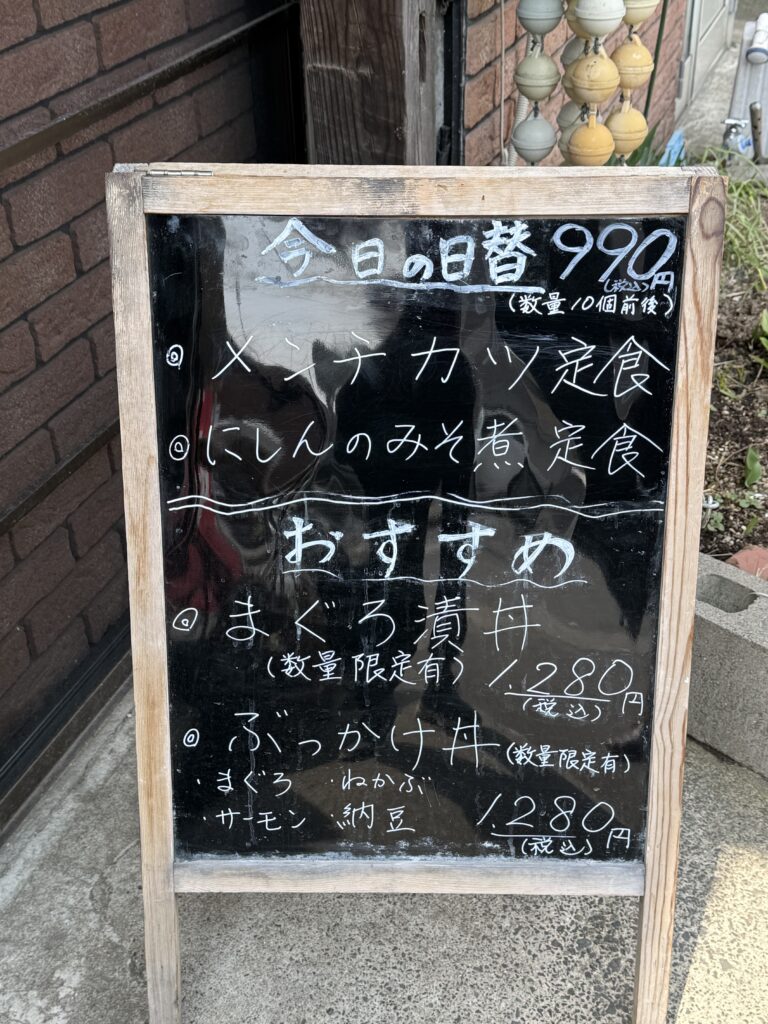 今日の日替 990円
(税込)
(数量10個前後)
◎メンチカツ定食
◎にしんのみそ煮定食
おすすめ
◎まぐろ漬丼
(数量限定有) 1,280円
(税込)
◎ぶっかけ丼(数量限定有)
・まぐろ ・ねかぶ
・サーモン ・納豆 1,280円
(税込)